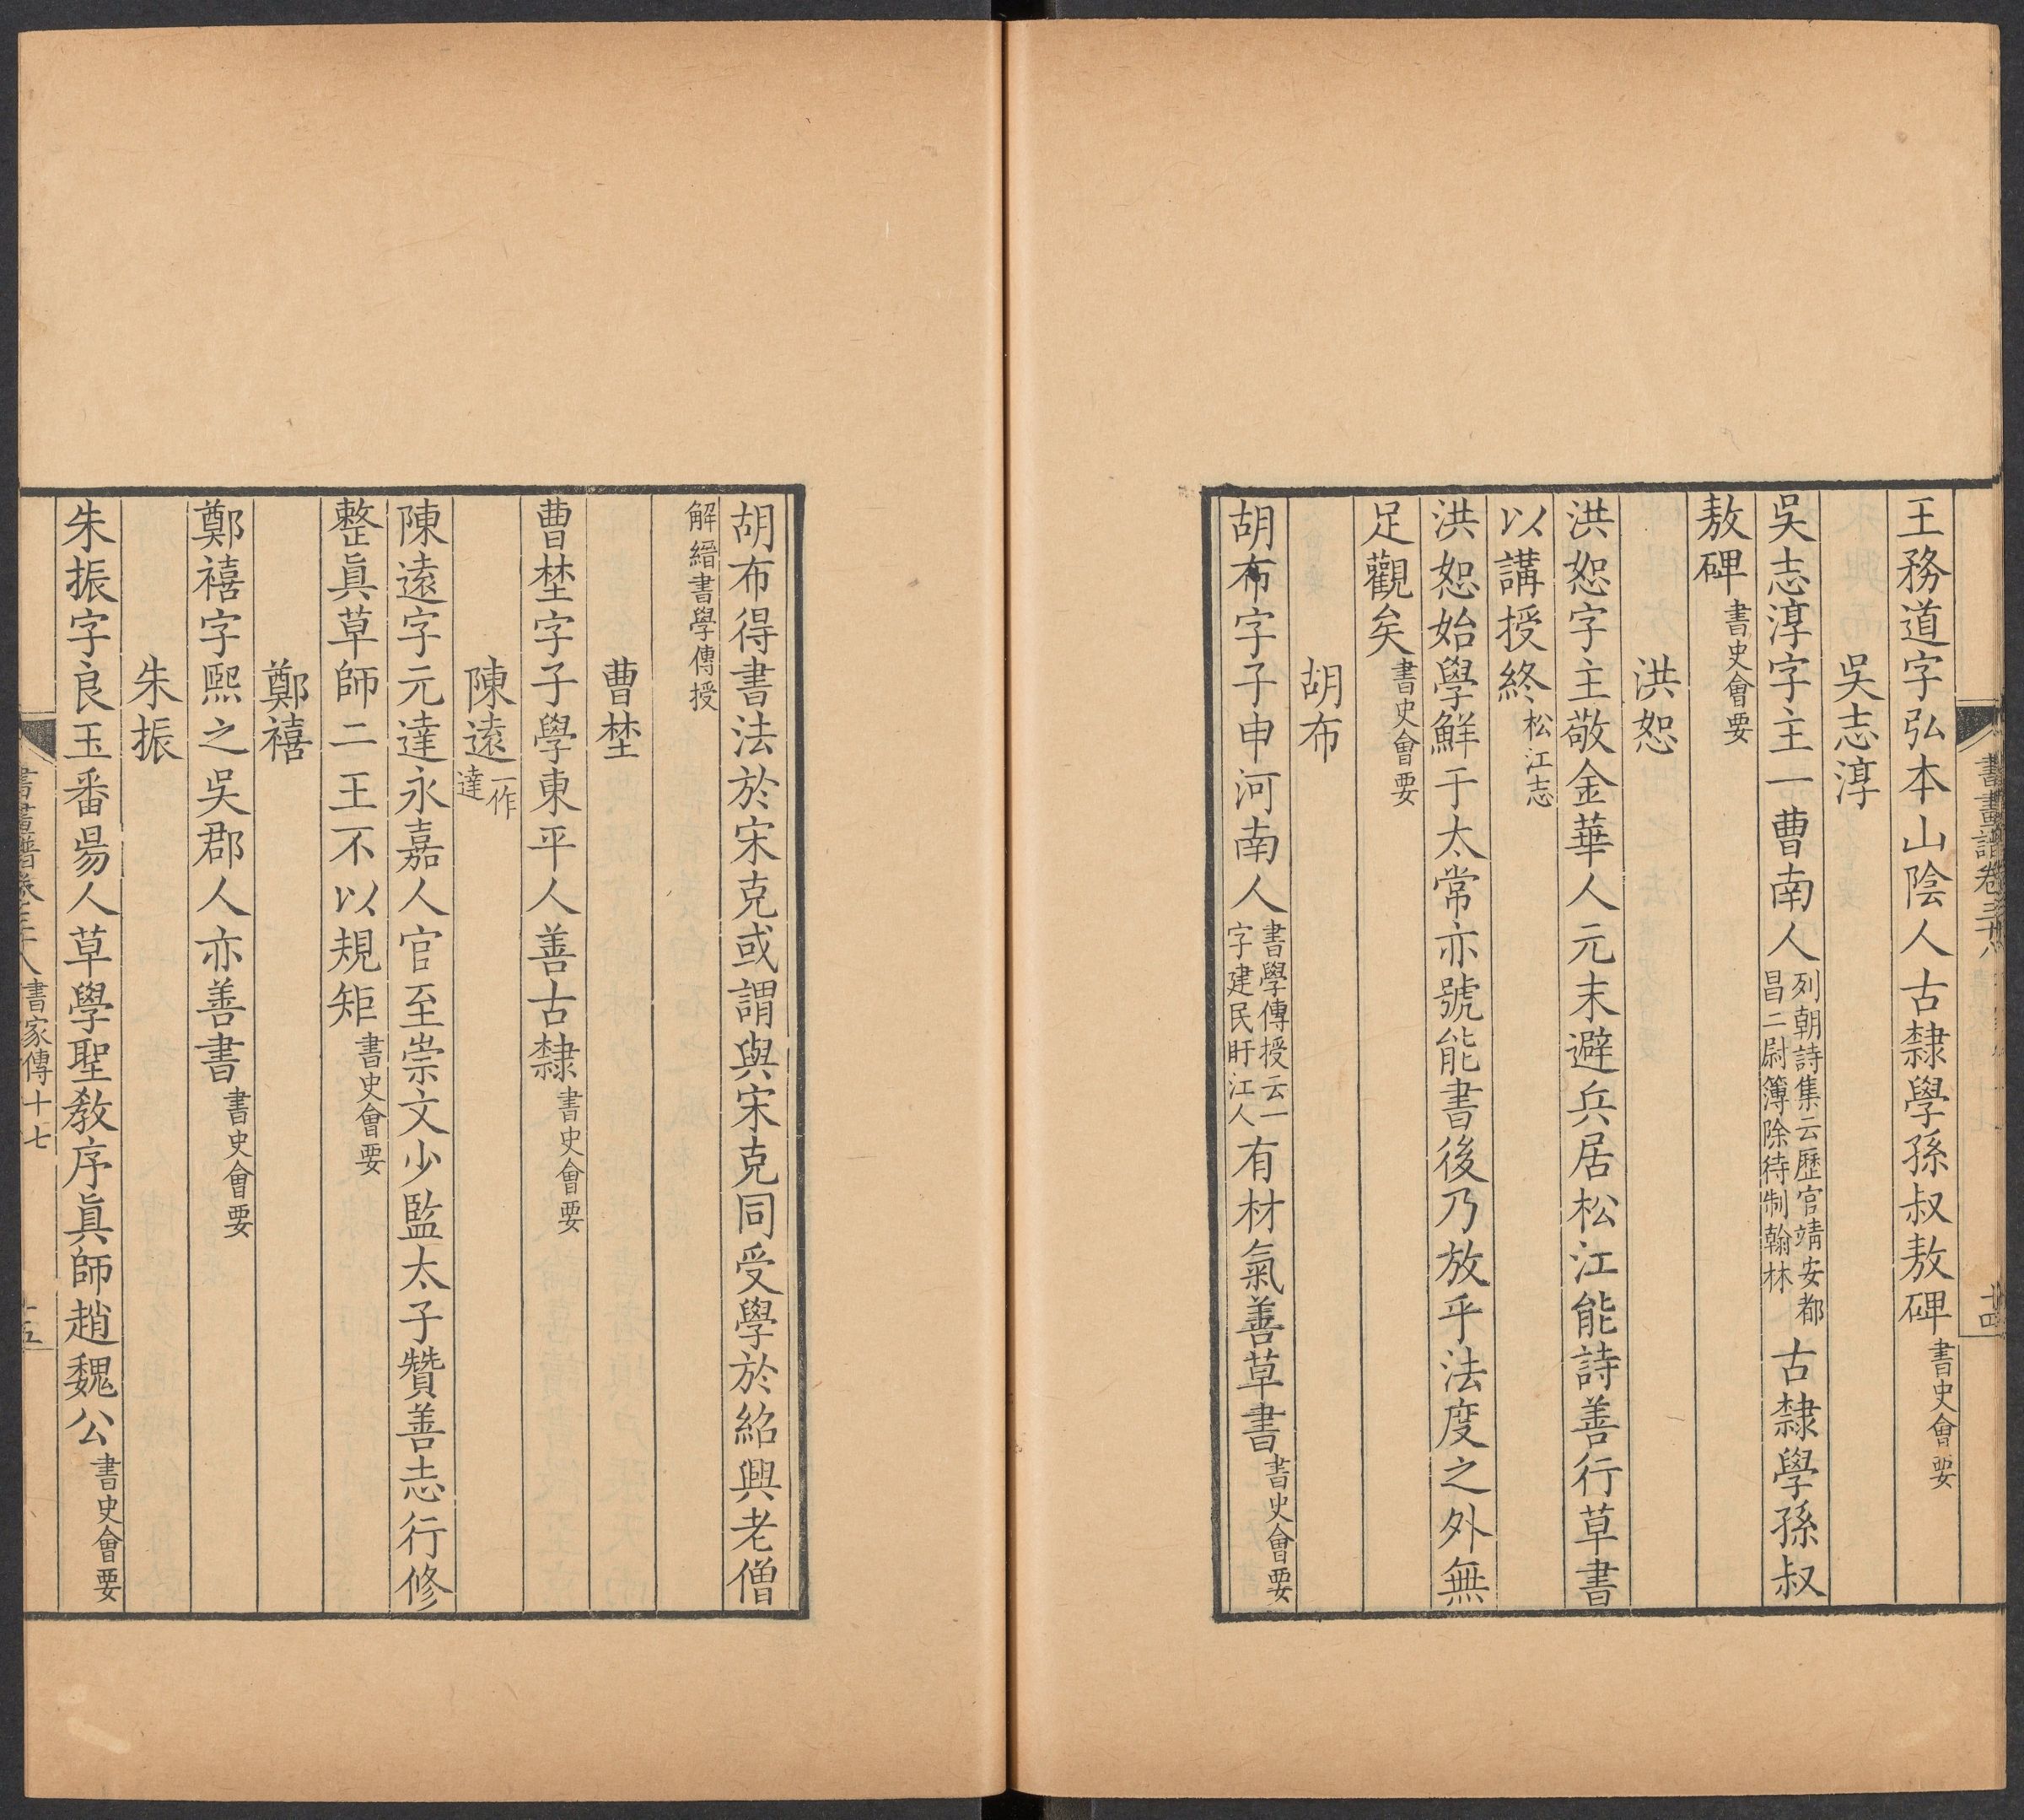 王務道字弘本山陰人古隸學孫叔敖碑書史會要
吳志淳
吳志淳字主一曹南人列朝詩集云歷官靖安都昌二尉簿除待制翰林古隸學孫叔
敖碑書史會要
洪恕
洪恕字主敬金華人元末避兵居松江能詩善行草書
以講授終松江志
洪恕始學鮮于太常亦號能書後乃放乎法度之外無
足觀矣書史會要
胡布
胡布字子申河南人書學傳授云一字建民盱江人有材氣善草書書史會要
胡布得書法於宋克或謂與宋克同受學於紹興老僧
解縉書學傳授
曹埜
曹埜字子學東平人善古隸書史會要
陳遠一作達
陳遠字元達永嘉人官至崇文少監太子贊善志行修
整眞草師二王不以規矩書史會要
鄭禧
鄭禧字熙之吳郡人亦善書書史會要
朱振
朱振字良玉番昜人草學聖教序眞師趙魏公書史會要
書畫譜卷三十八書家傳十七